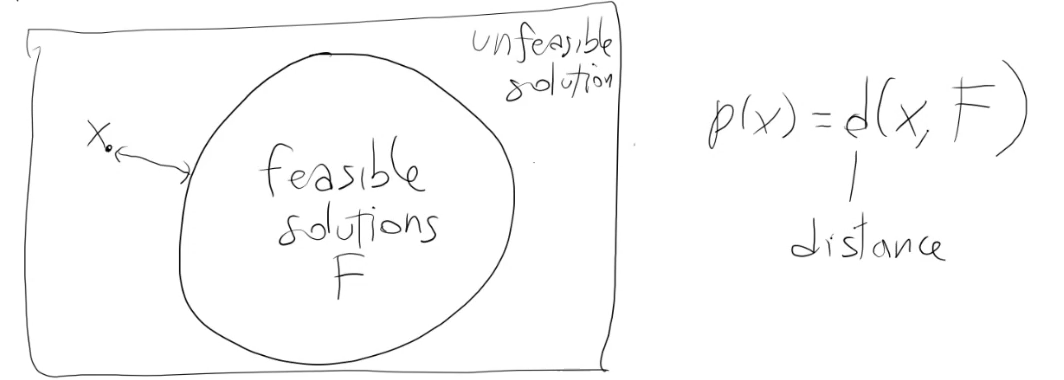 unfeasible
solution
x
feasible
solutions
F
p(x) = d(x, F)
distance